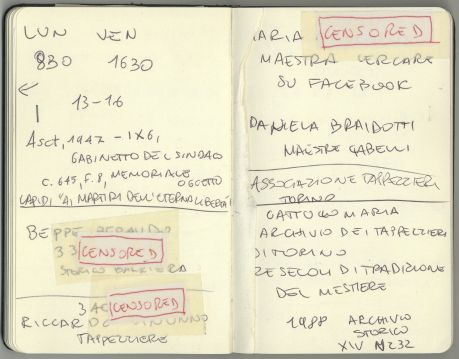 LUN VEN
830 1630
13-16
Asct, 1947 - 1X6,
GABINETTO DEL SINDACO
C. 645, F. 8, MEMORIALE
OGGETTO
LAPIDI "AI MARTIRI DELL'ETERNA LIBERTÀ"
BEPPE
33 CENSORED
STORICO BARRIERA
3 CENSORED
RICCARDO
TAPPEZZIERE
CENSORED
MAESTRA CERCARE
SU FACEBOOK
DANIELA BRAIDOTTI
MAESTRE GABELLI
ASSOCIAZIONE TAPPEZZIERI
TORINO
CATTO MARIA
ARCHIVIO DEI TAPPEZZIERI
DI TORINO
RE SECOLI DI TRADIZIONE
DEL MESTIERE
1988 ARCHIVIO
STORICO
XIV N232